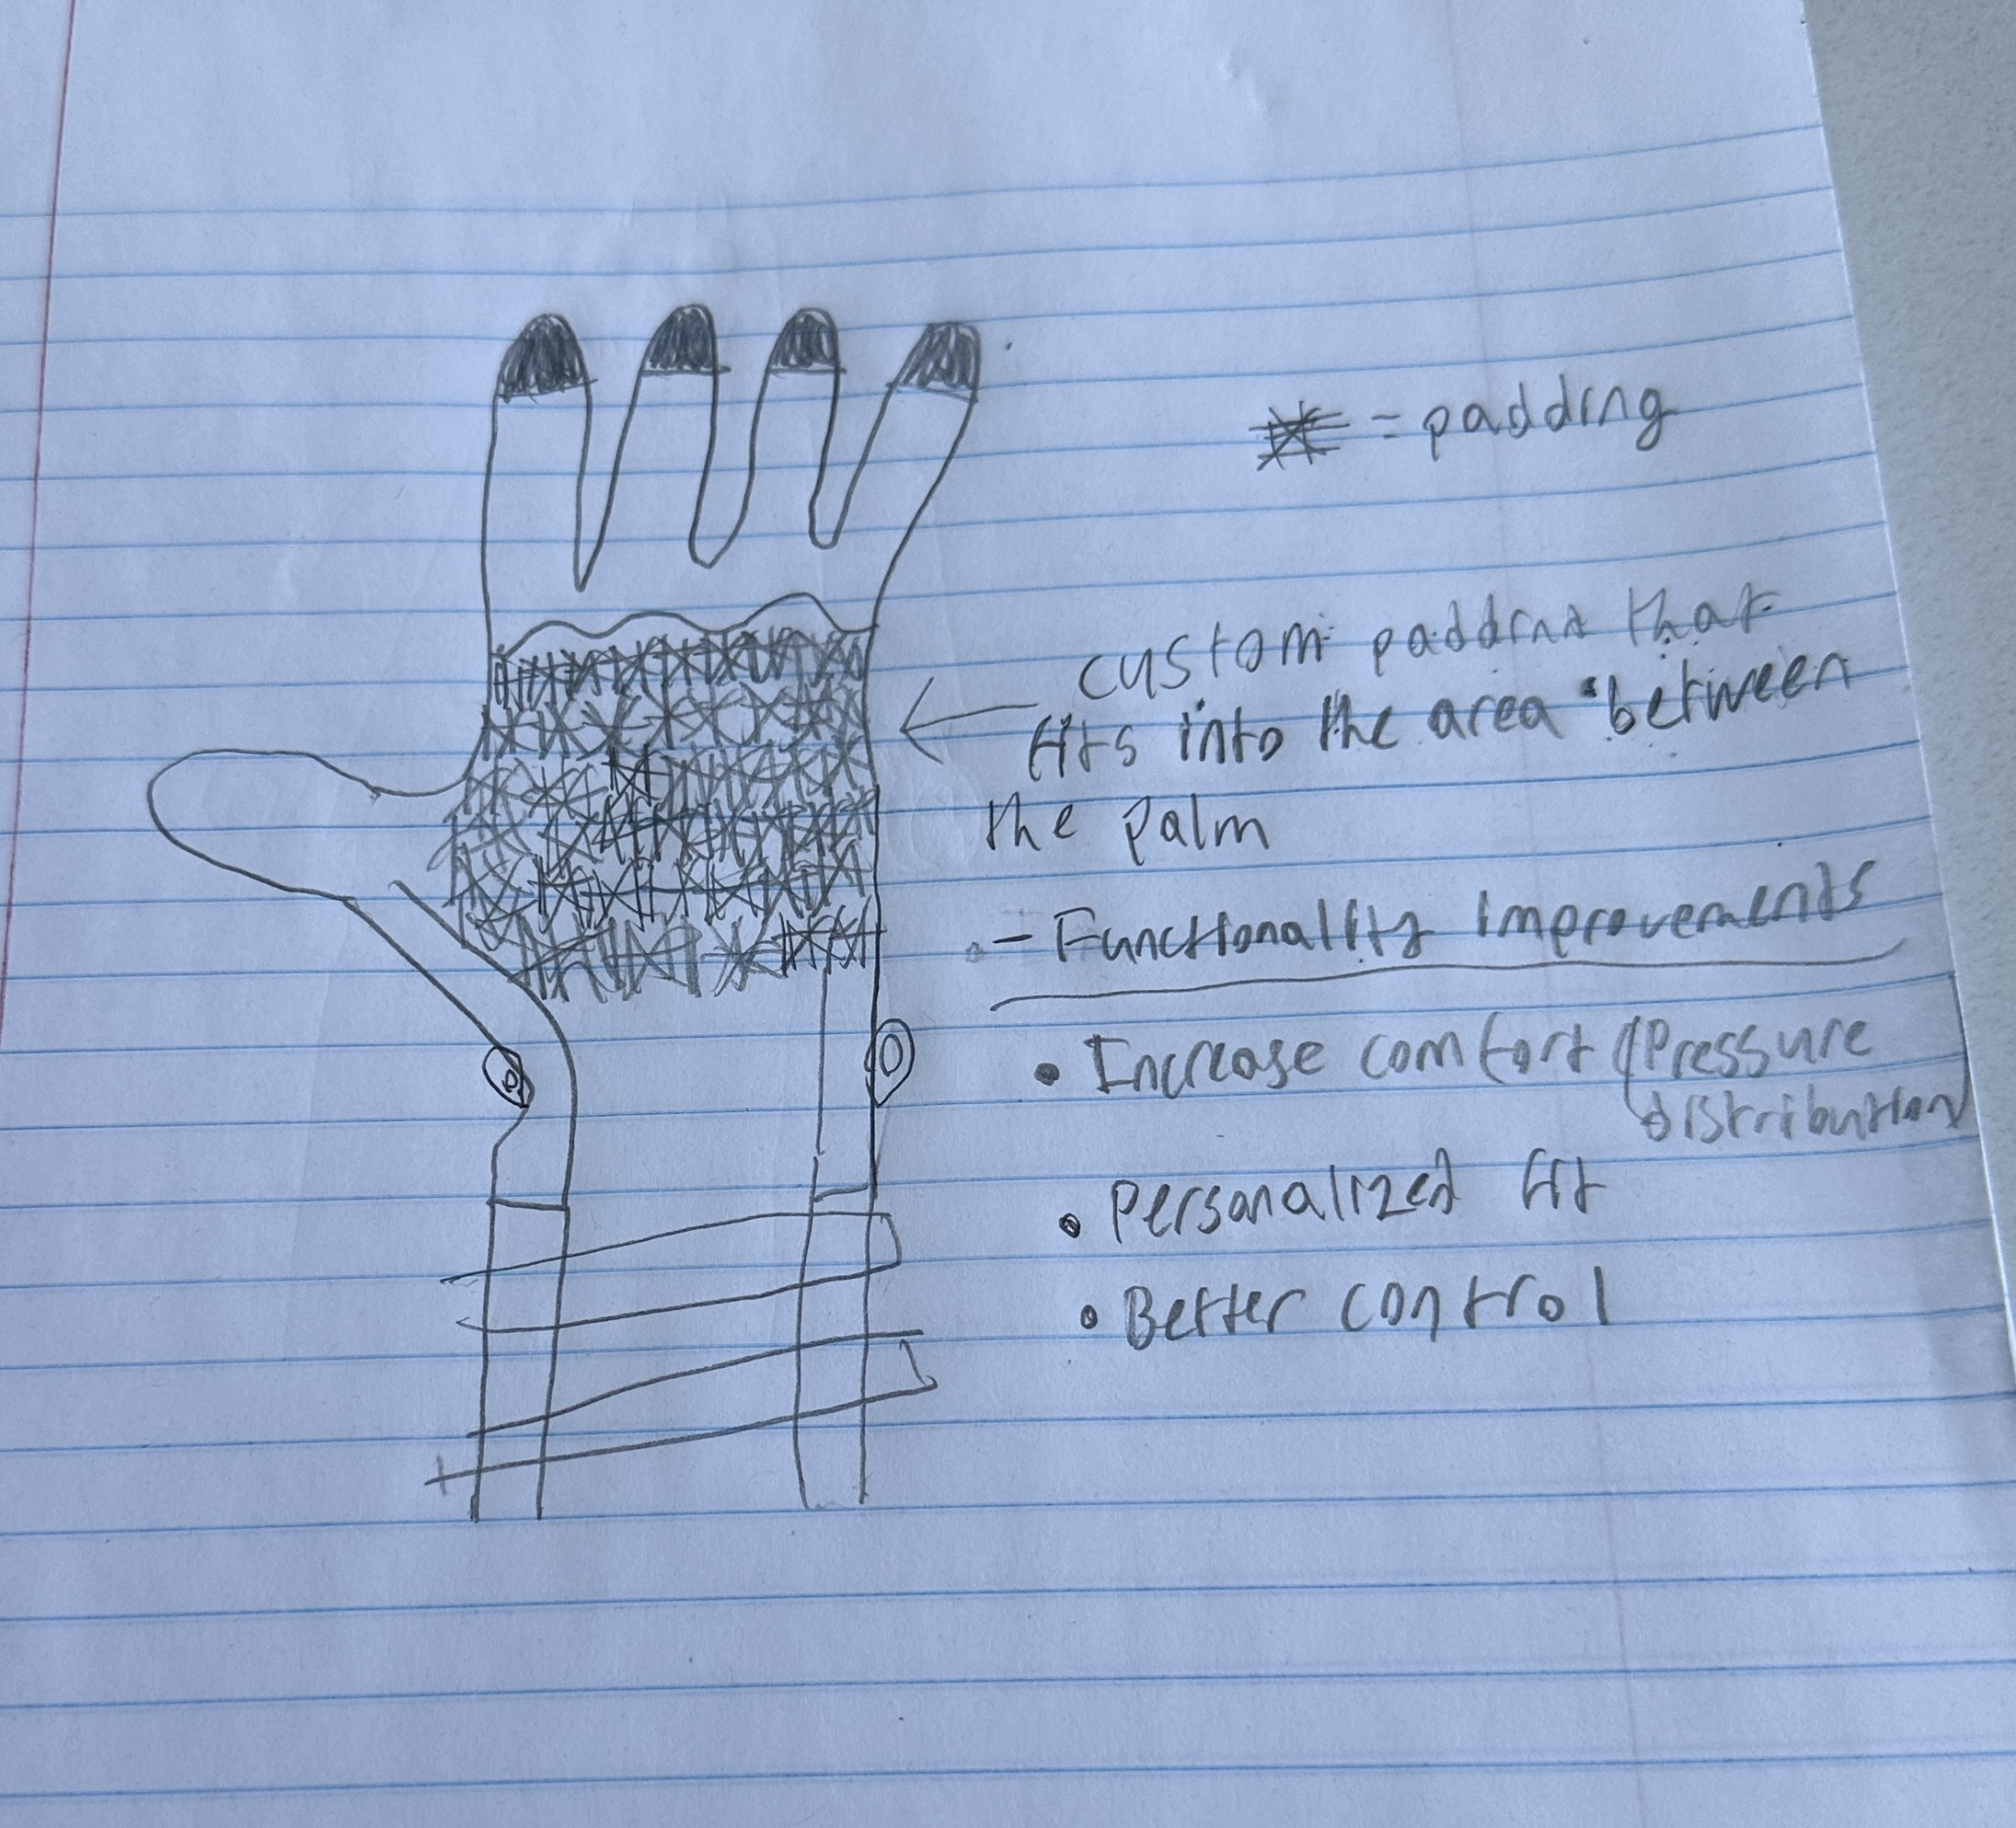 = padding
custom padding that
fits into the area between
the palm
- Functionality improvements
• Increase comfort / Pressure
distribution
• Personalized fit
• Better control